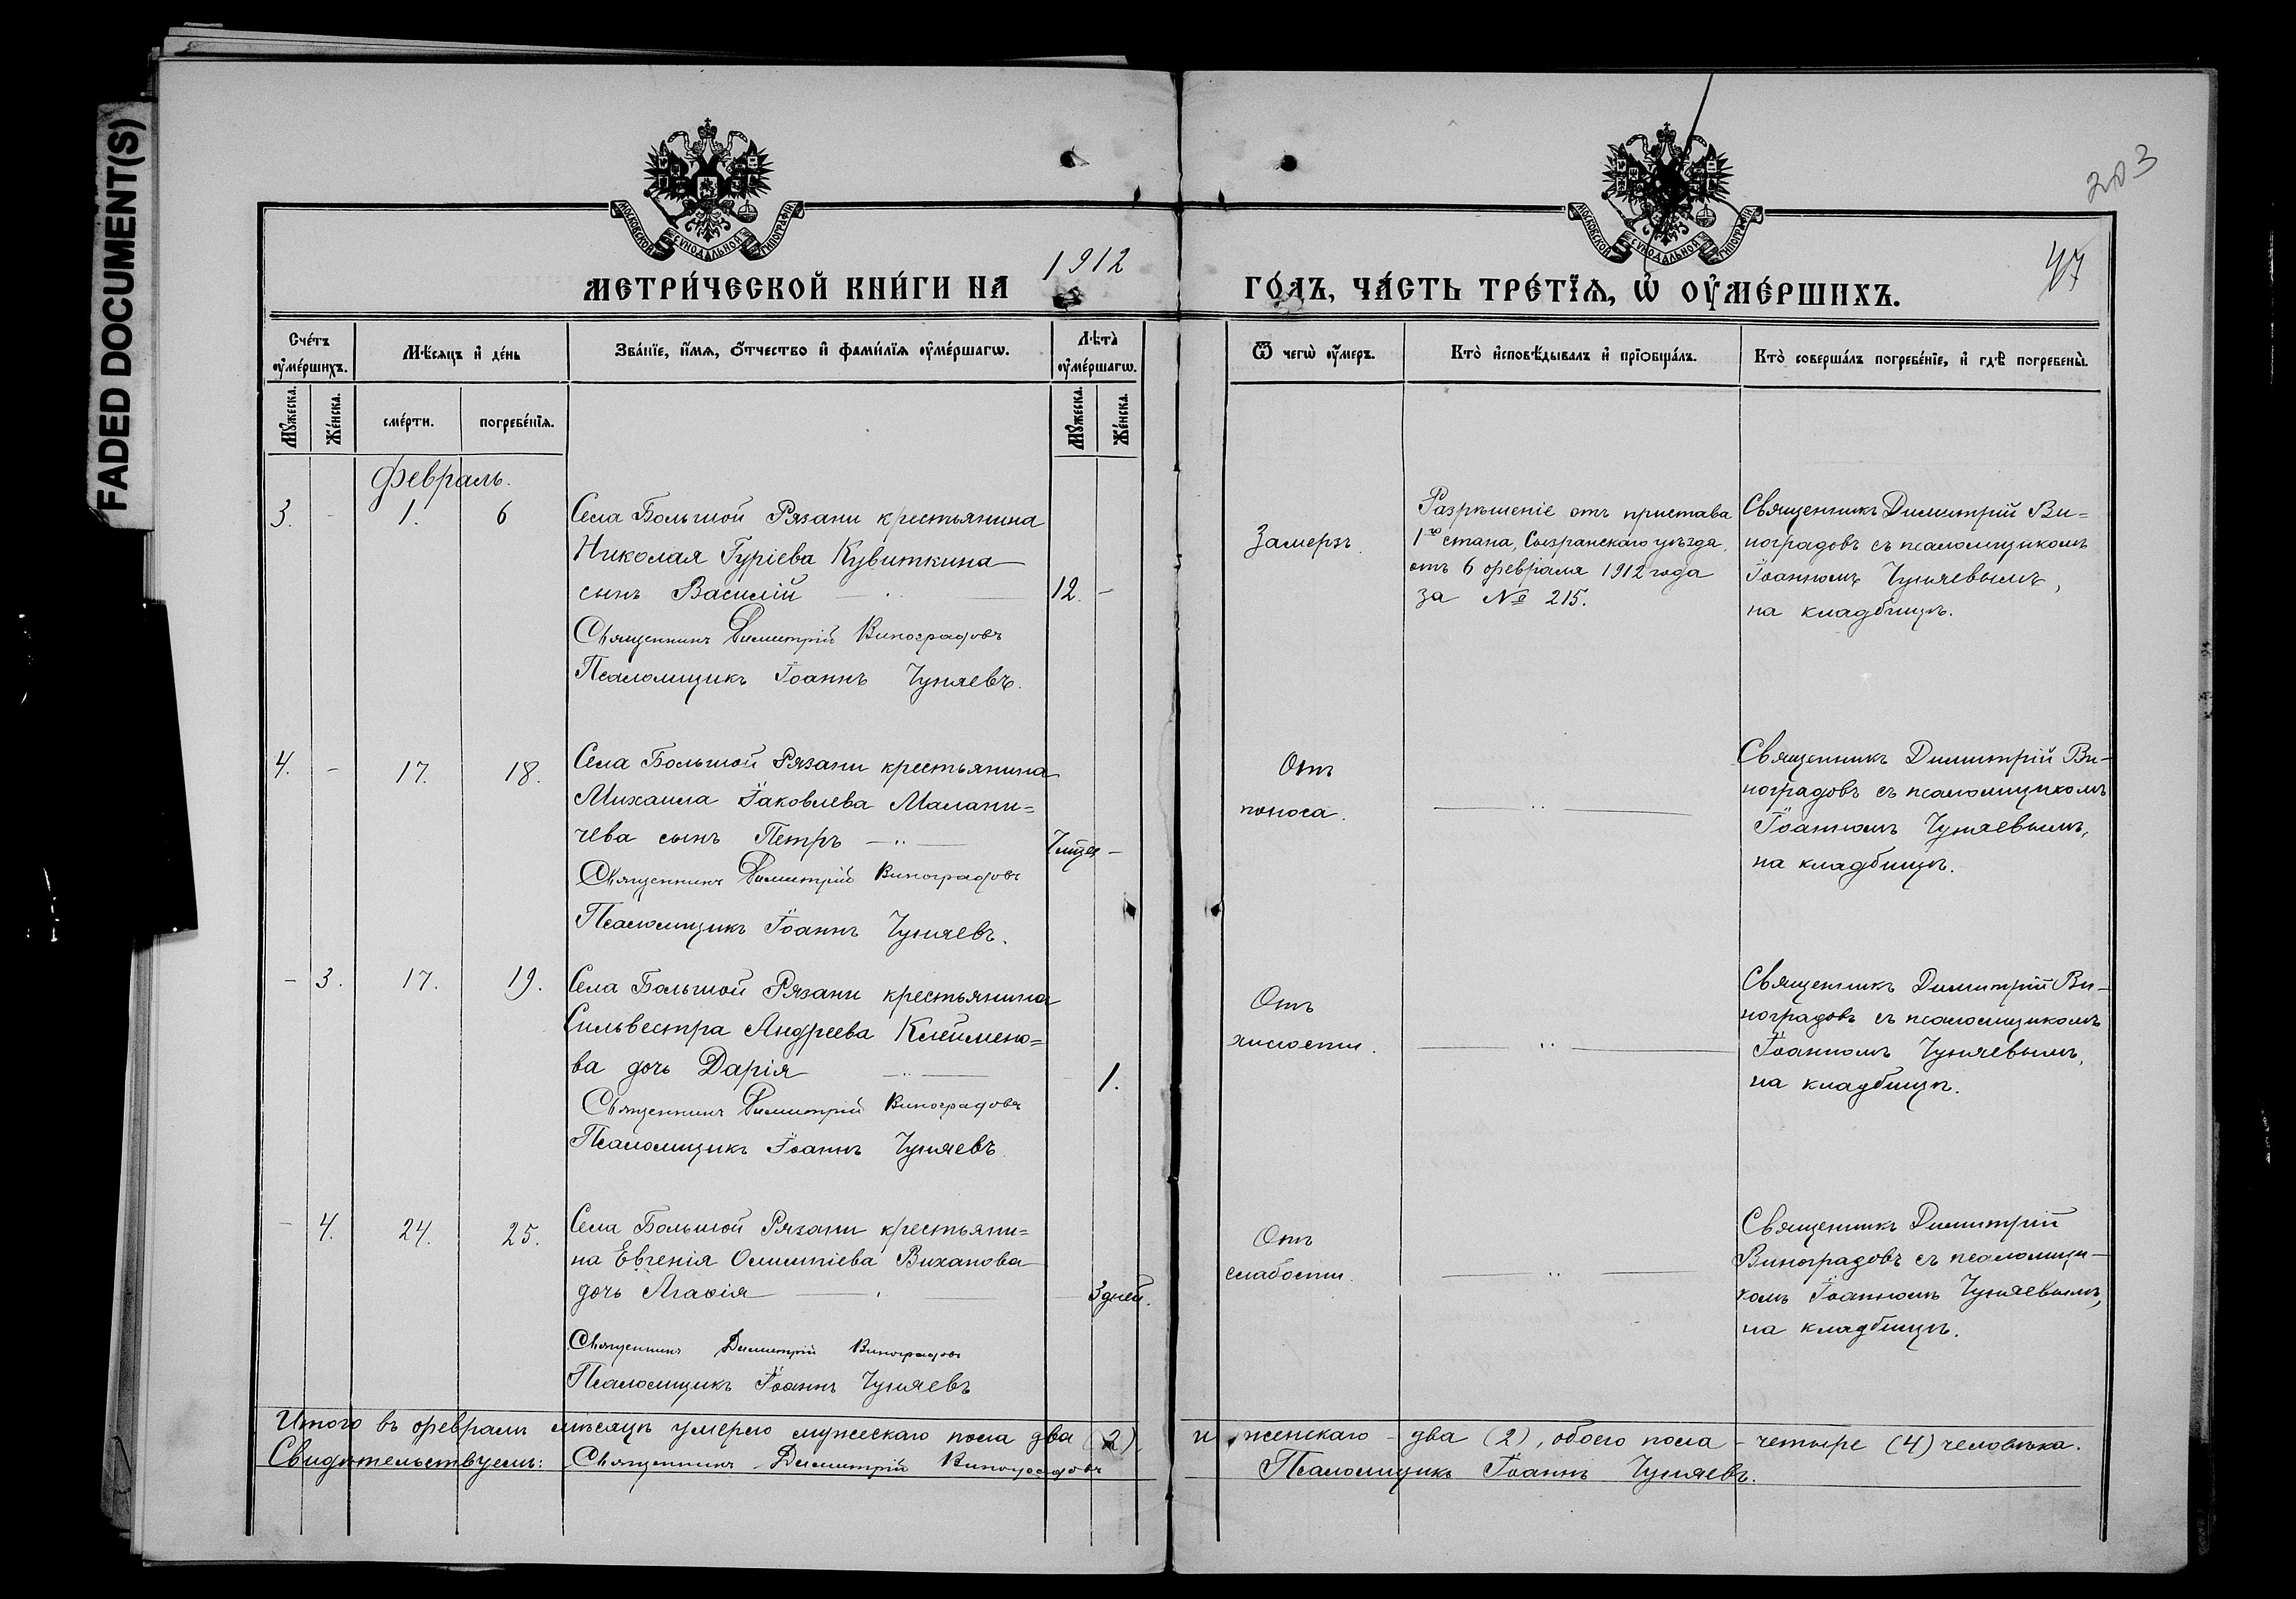 FADED DOCUMENT(S)
203
47
МОСКОВСКОЙ СѴНОДАЛЬНОЙ ТИПОГРАФІИ
МОСКОВСКОЙ СѴНОДАЛЬНОЙ ТИПОГРАФІИ
МЕТРИ́ЧЕСКОЙ КНИ́ГИ НА 1912 ГО́ДЪ, ЧА́СТЬ ТРЕ́ТЇѦ, Ѡ ОУ҆МЕ́РШИХЪ.
Сче́тъ оу҆ме́ршихъ.
Мѣ́сяцъ и҆ де́нь
Зва́нїе, и҆́мѧ, ѻ҆́тчество и҆ фами́лїѧ оу҆ме́ршагѡ.
Лѣ́та оу҆ме́ршагѡ.
Ѿ чегѡ̀ оу҆́меръ.
Кто̀ и҆сповѣ́дывалъ и҆ прїѻбща́лъ.
Кто̀ соверша́лъ погребе́нїе, и҆ гдѣ̀ погребены̀.
Мꙋ́жеска.
Же́нска.
сме́рти.
погребе́нїѧ.
Мꙋ́жеска.
Же́нска.
Февраль.
3. - 1. 6
Села Большой Рязани крестьянина
Николая Гурiева Кувиткина
сынъ Василiй 12. -
Священникъ Димитрiй Виноградовъ
Псаломщикъ Iоаннъ Чуняевъ.
Замерзъ.
Разрѣшенiе отъ пристава
1го стана, Сызранскаго уѣзда,
отъ 6 февраля 1912 года
за № 215.
Священникъ Димитрiй Ви=
ноградовъ съ псаломщикомъ
Iоанномъ Чуняевымъ,
на кладбищѣ.
4. - 17. 18.
Села Большой Рязани крестьянина
Михаила Iаковлева Малани=
чева сынъ Петръ -
Священникъ Димитрiй Виноградовъ
Псаломщикъ Iоаннъ Чуняевъ.
Отъ
поноса.
Священникъ Димитрiй Ви-
ноградовъ съ псаломщикомъ
Iоанномъ Чуняевымъ,
на кладбищѣ.
- 3. 17. 19.
Села Большой Рязани крестьянина
Сильвестра Андреева Клеймено=
ва дочь Дарiя 1.
Священникъ Димитрiй Виноградовъ
Псаломщикъ Iоаннъ Чуняевъ
Отъ
Священникъ Димитрiй Ви-
ноградовъ съ псаломщикомъ
Iоанномъ Чуняевымъ,
на кладбищѣ.
- 4. 24. 25.
Села Большой Рязани крестьяни=
на Евгенiя Олимпiева Виханова
дочь Агаѳiя 3 дней.
Священникъ Димитрiй Виноградовъ
Псаломщикъ Iоаннъ Чуняевъ
Отъ
слабости.
Священникъ Димитрiй
Виноградовъ съ псаломщи-
комъ Iоанномъ Чуняевымъ,
на кладбищѣ.
Итого въ февралѣ мѣсяцѣ умерло мужескаго пола два (2) и женскаго - два (2), обоего пола - четыре (4) человѣка.
Свидѣтельствуемъ: Священникъ Димитрiй Виноградовъ Псаломщикъ Iоаннъ Чуняевъ.